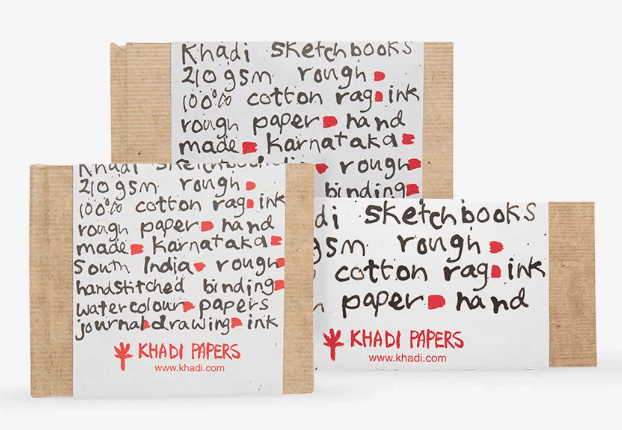 Khadi sketchbooks
210gsm rough
100% cotton rag ink
rough paper hand
made karnataka
rough
binding
Khadi sketchbooks
210gsm rough
100% cotton rag ink
rough paper hand
made karnataka
South India rough
handstitched binding
watercolour papers
journal drawing ink
KHADI PAPERS
www.khadi.com
di sketchbooks
gsm rough
cotton rag ink
paper hand
KHADI PAPERS
www.khadi.com